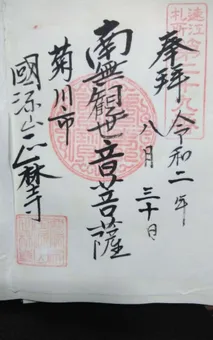 遠江第二十九番
札所
奉拝 令和二年
八月三十日
南無観世音菩薩
菊川市
國源山正林寺